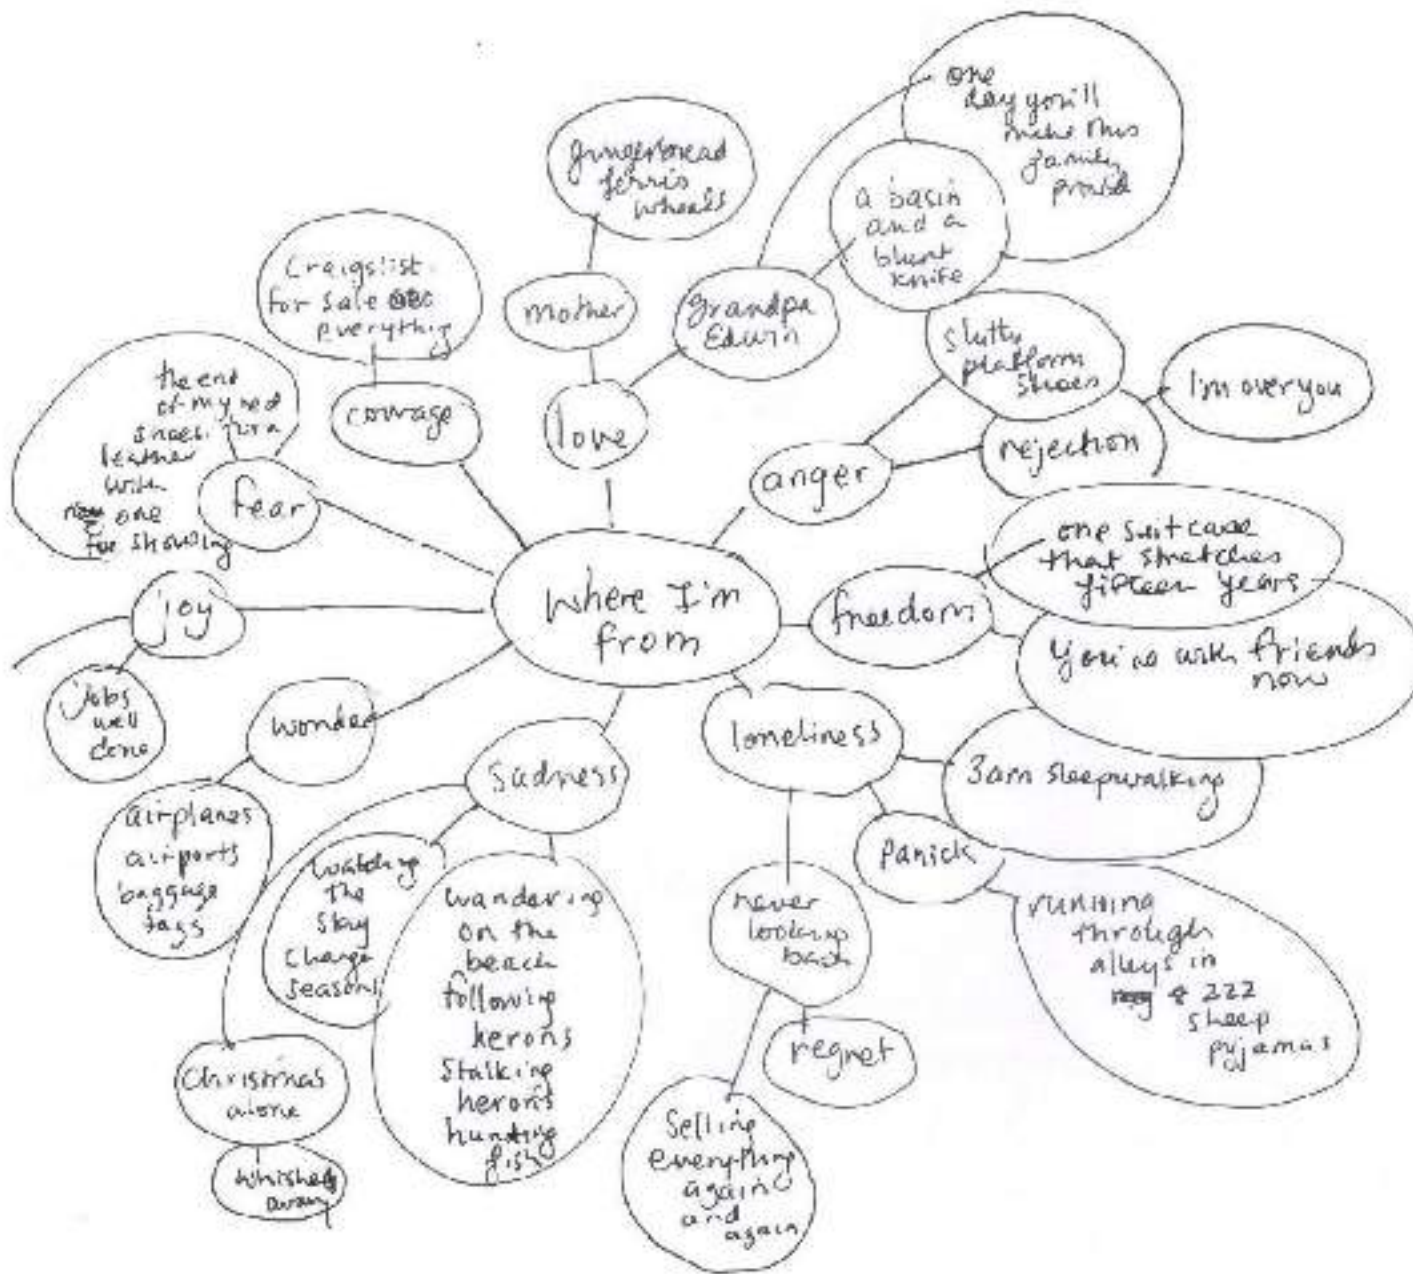 Where I'm
from
love
mother
gingerbread
ferris
wheels
grandpa
Edwin
one
day you'll
make this
family
proud
a basin
and a
blunt
knife
anger
slutty
platform
shoes
rejection
I'm over you
freedom
one suitcase
that stretches
fifteen years
you're with friends
now
loneliness
3am sleepwalking
panick
running
through
alleys in
222
sheep
pyjamas
never
looking
back
regret
Selling
everything
again
and
again
sadness
wandering
on the
beach
following
herons
stalking
herons
hunting
fish
watching
the
sky
change
seasons
Christmas
alone
whisked
away
wonder
airplanes
airports
baggage
tags
joy
jobs
well
done
fear
the end
of my red
shoes
leather
with
one
for showing
courage
Craigslist
for sale
everything